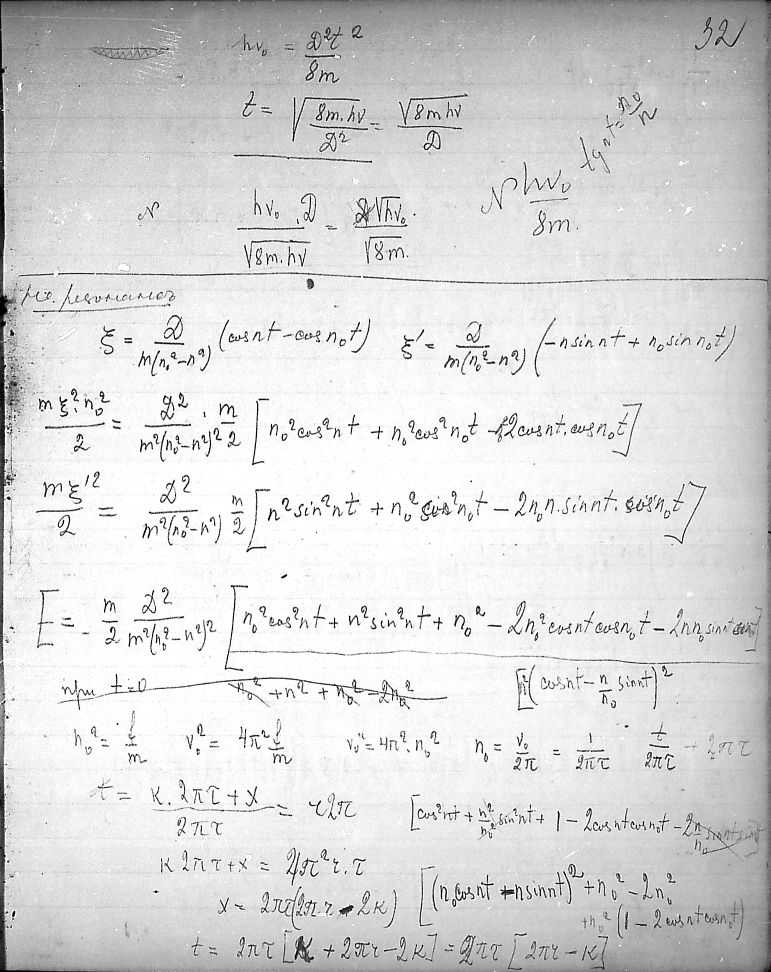 32
hν₀ = D²t²/8m
t = √(8m.hν/D²) = √(8m hν)/D
tg nt = n₀/n
N hν₀/√(8m.hν) . D = √(hν₀)/√(8m).
N hν₀/8m.
ξ = D/m(n₀²-n²) (cosnt - cosn₀t) ξ' = D/m(n₀²-n²) (-nsinnt + n₀sinn₀t)
mξ².n₀²/2 = D²/m²(n₀²-n²)² . m/2 [n₀²cos²nt + n₀²cos²n₀t - 2cosnt.cosn₀t]
mξ'²/2 = D²/m²(n₀²-n²) m/2 [n²sin²nt + n₀²sin²n₀t - 2n₀n.sinnt.sinn₀t]
E = m/2 D²/m²(n₀²-n²)² [n₀²cos²nt + n²sin²nt + n₀² - 2n₀²cosntcosn₀t - 2nn₀sinnt sinn₀t]
при t=0 n₀² + n² + n₀² - 2n₀² [n₀²(cosnt - n/n₀ sinnt)²
n₀² = f/m ν₀² = 4π² f/m ν₀² = 4π².n₀² n₀ = ν₀/2π = 1/2πτ t/2πτ + 2πτ
t = к.2πτ + x/2πτ = r2π [cos²nt + n²/n₀² sin²nt + 1 - 2cosntcosn₀t - 2n/n₀ sinnt sinn₀t
к2πτ+x = 4π²r.τ
x = 2πτ(2πr - 2к) [(n₀cosnt - nsinnt)² + n₀² - 2n₀²
+n₀²(1 - 2cosntcosn₀t)
t = 2πτ[к + 2πr - 2к] = 2πτ[2πr - к]